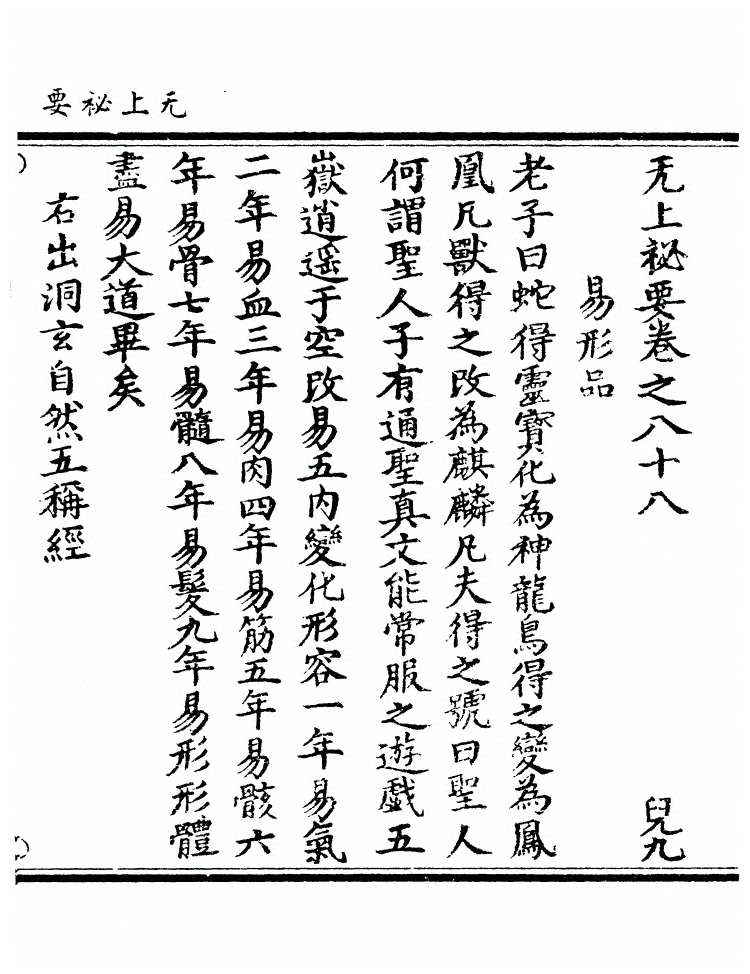 无上祕要
无上祕要卷之八十八 兒九
易形品
老子曰蛇得靈寶化為神龍鳥得之變為鳳
凰凡獸得之改為麒麟凡夫得之號曰聖人
何謂聖人子有通聖真文能常服之遊戲五
嶽逍遥于空改易五内變化形容一年易氣
二年易血三年易肉四年易筋五年易骸六
年易骨七年易髓八年易髮九年易形形體
盡易大道畢矣
右出洞玄自然五稱經